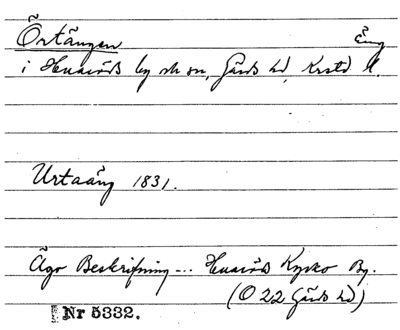 Örtängen Äng
i Huaröds by sn, Gärds hd, Krstd l.
Urtaäng 1831.
Ägo Beskrifning --- Huaröds Kyrko By.
(O 22 Gärds hd)
Nr 5332.